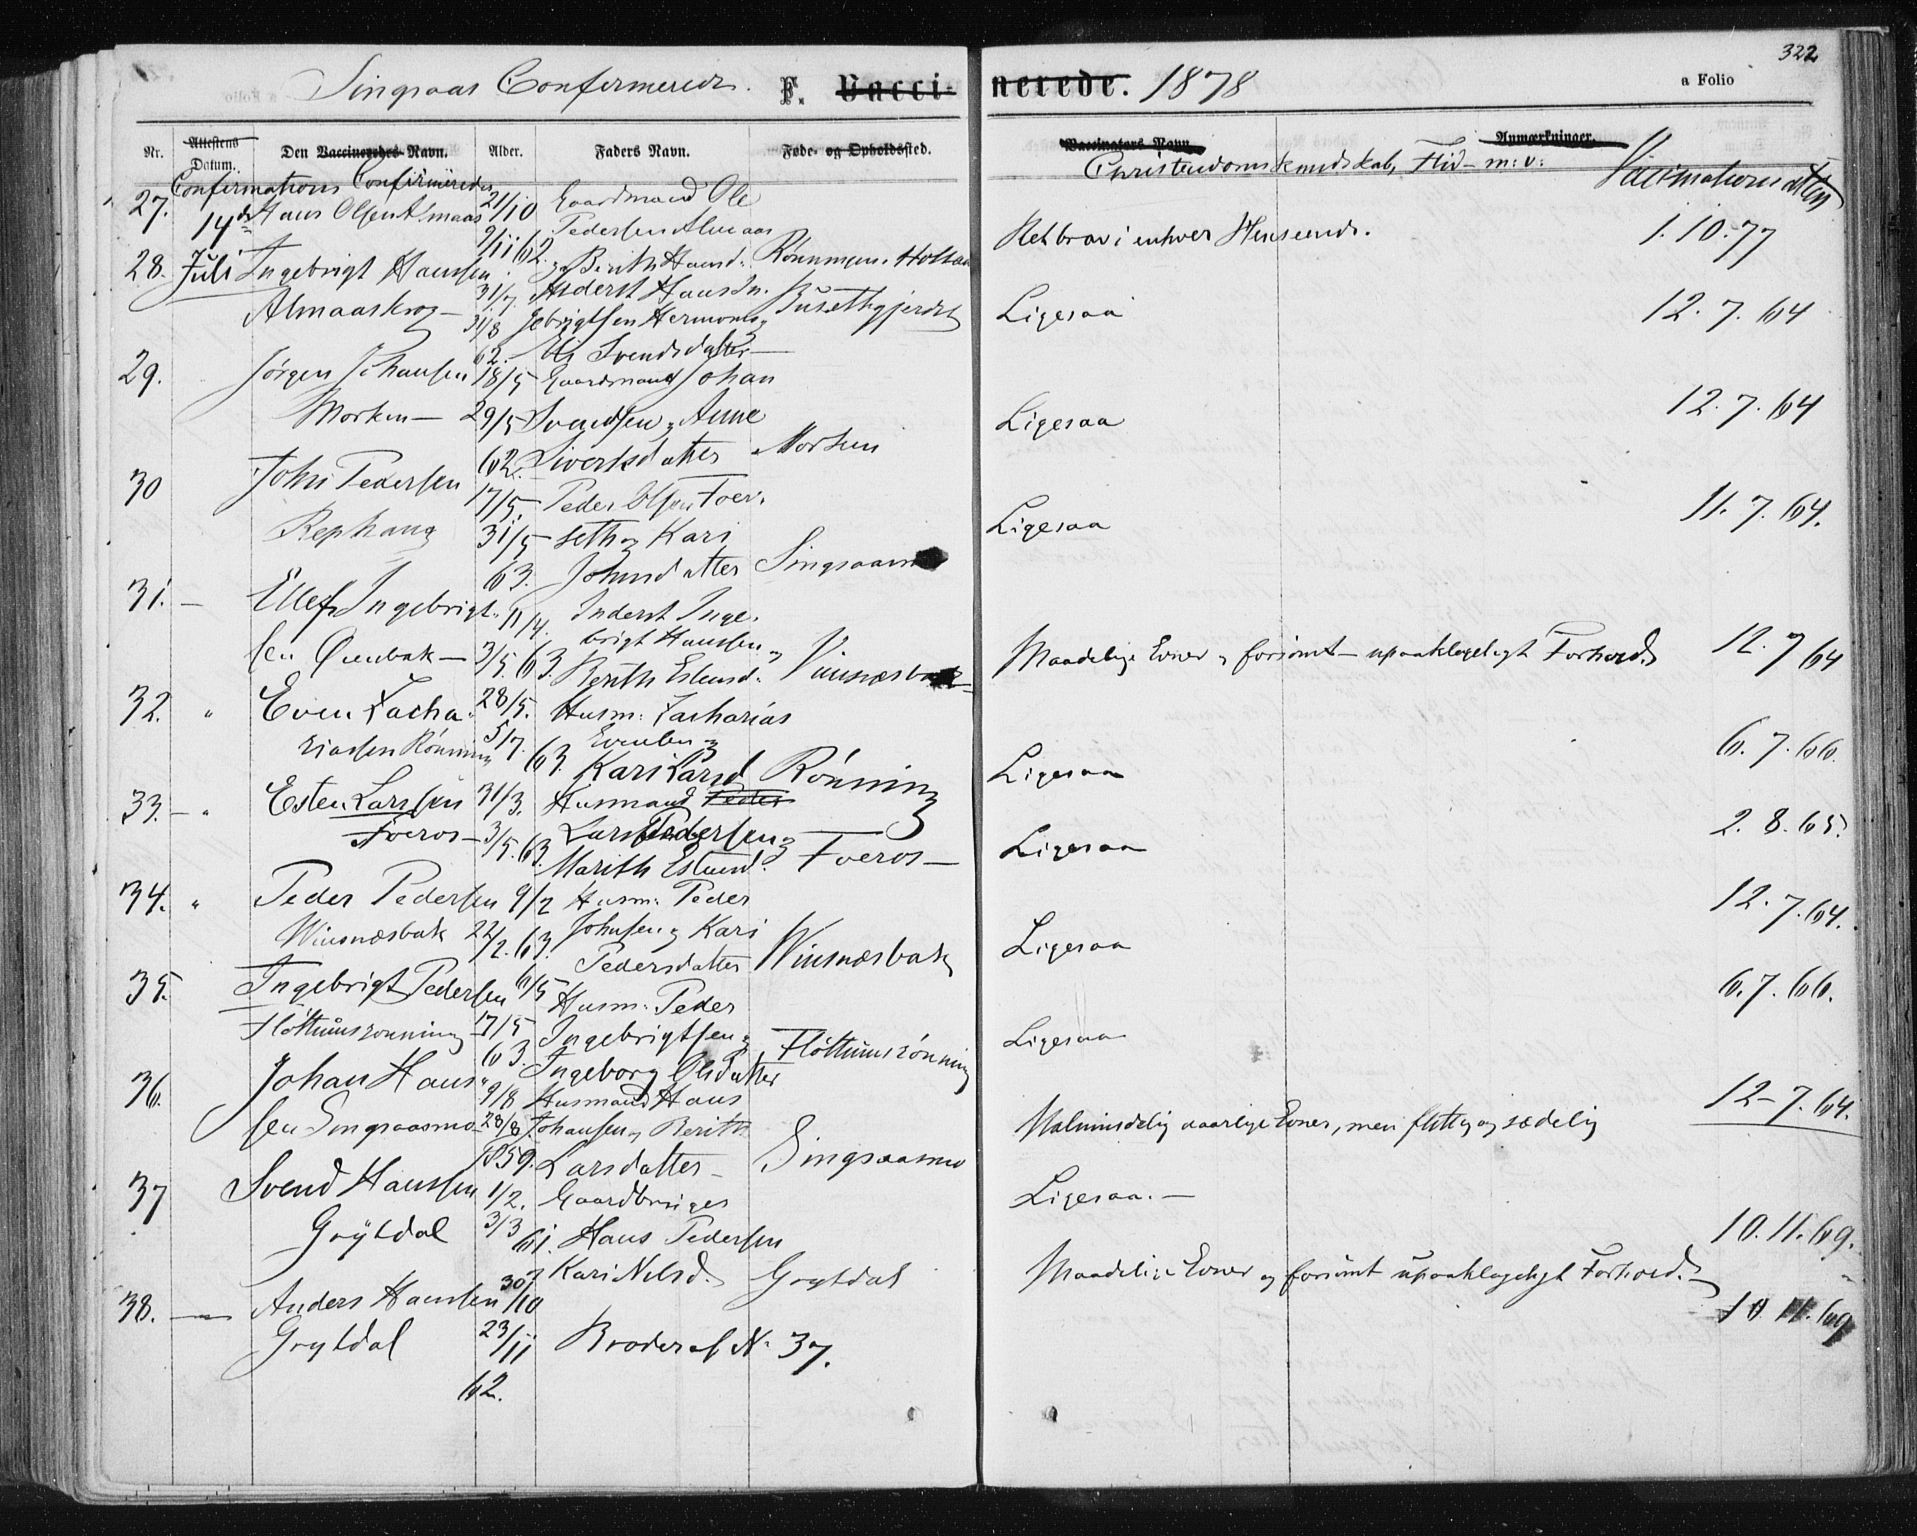 322
Singsaas Confirmerede. F. Vacci- nerede. 1878
a Folio
Nr. Attestens Datum. Den Vaccineredes Navn. Alder. Faders Navn. Føde- og Opholdssted. Vaccinators Navn. Anmærkninger.
Confirmations Confirmeredes Christendomskundskab, Flid m: v: Vaccinationsattest
27. 14de Hans Olsen Almaas 21/10 Gaardmand Ole
Pedersen Almaas
9/11 62. og Berith Hansd. Rønningen Holtaa
Retbrav i enhver Henseende. 1.10.77
28. Juli Ingebrigt Hanssen 31/7 Inderst Hans In-
Almaaskrog 31/8 gebrigtsen Hermo Busethgjerdet
62. Svendsdatter
Ligesaa 12.7.64
29. Jørgen Johansen 18/5 Gaardmand Johan
Morken 29/5 Svendsen og Anne
62. Sivertsdatter Morken
Ligesaa 12.7.64
30 John Pedersen 17/5. Peder Olsen Foer-
Rephaug 31/5 seth og Kari
63. Johnsdatter Singsaas
Ligesaa 11.7.64.
31. Ellef Ingebrigt- 11/4. Inderst Inge-
sen Øienbak 3/5. 63. brigt Hanssen og
Berith Estensd. Vinsnesbak
Maadelige Evner og forsømt - upaaklageligt Forhold. 12.7 64
32. " Even Zacha- 28/5. Husm: Zacharias
riassen Rønning 5/7. Evensen og
63. Kari Larsd. Rønning
Ligesaa 6.7.66.
33. " Esten Larssen 31/3. Husmand Peder
Foeros 3/5. 63. Lars Pedersen og
Marith Estensd. Foeros
Ligesaa 2.8.65.
34. " Peder Pedersen 9/2 Husm: Peder
Winsnesbak 22/2. 63. Johnsen og Kari
Pedersdatter Winsnesbak
Ligesaa 12.7.64.
35. Ingebrigt Pedersen 6/5 Husm: Peder
Fløttumsrønning 17/5 Ingebrigtsen og
63. Ingeborg Olsdatter Fløttumsrønning
Ligesaa 6.7.66.
36. Johan Hans- 9/8 Husmand Hans
sen Singsaasmo 28/8. Johansen og Berith
1859. Larsdatter Singsaasmo
Halvmaadelig daarlige Evner, men flittig og sædelig 12-7.64.
37 Svend Hanssen 1/2. Gaardbruger
Grytdal 3/3 61. Hans Pedersen
Kari Nilsd. Grytdal
Ligesaa. 10.11.69.
38. Anders Hanssen 30/10
Grytdal 23/11 Broder af N. 37.
62.
Maadelige Evner og forsømt upaaklageligt Forhold. 10.11.69